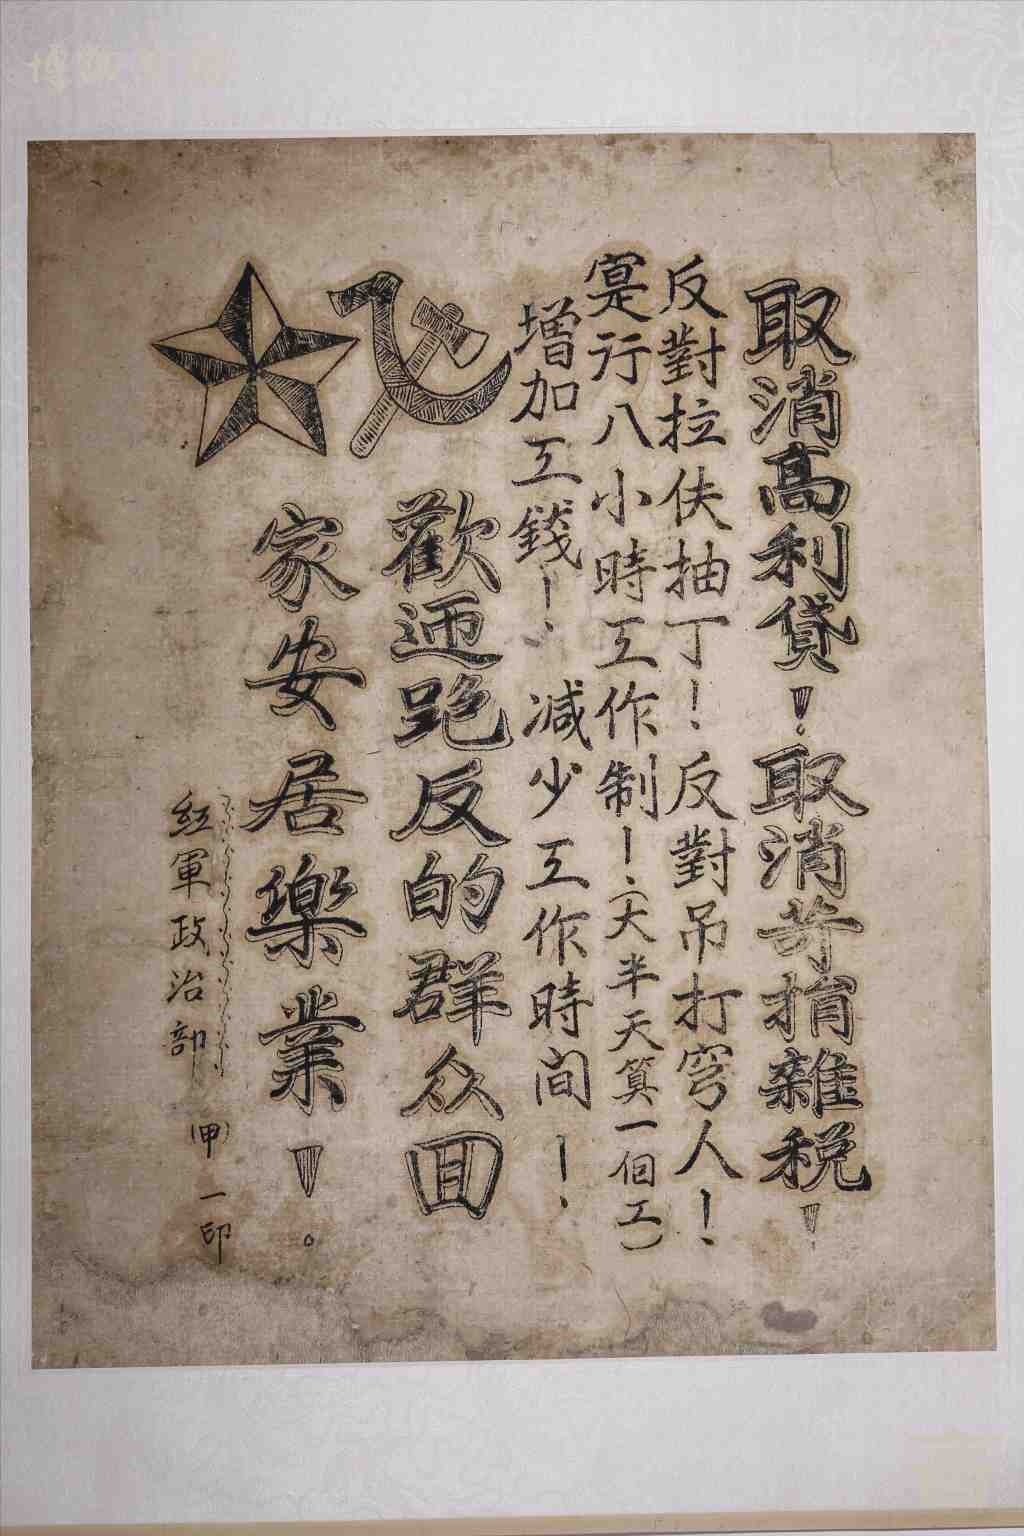 取消高利貸！取消苛捐雜税！
反對拉伕抽丁！反對吊打穷人！
寔行八小時工作制！（大半天算一個工）
增加工錢！減少工作時间！
歡迊跑反的群众回
家安居樂業！
紅軍政治部
（甲）一印